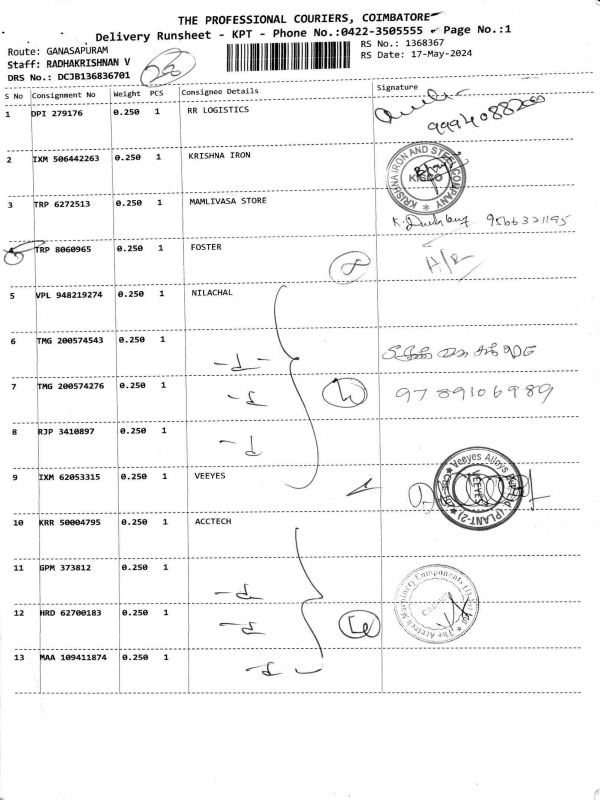 THE PROFESSIONAL COURIERS, COIMBATORE
Delivery Runsheet - KPT - Phone No.:0422-3505555 - Page No.:1
Route: GANASAPURAM
RS No.: 1368367
Staff: RADHAKRISHNAN V
RS Date: 17-May-2024
DRS No.: DCJB136836701
S No Consignment No Weight PCS Consignee Details Signature
1 DPI 279176 0.250 1 RR LOGISTICS
2 IXM 506442263 0.250 1 KRISHNA IRON
KRISHNA IRON AND STEEL COMPANY
KISCO
3 TRP 6272513 0.250 1 MAMLIVASA STORE
9566321195
4 TRP 8060965 0.250 1 FOSTER
5 VPL 948219274 0.250 1 NILACHAL
6 TMG 200574543 0.250 1
7 TMG 200574276 0.250 1 9789106989
8 RJP 3410897 0.250 1
9 IXM 62053315 0.250 1 VEEYES
VEEYES
(PLANT-2)
10 KRR 50004795 0.250 1 ACCTECH
11 GPM 373812 0.250 1
12 HRD 62700183 0.250 1
13 MAA 109411874 0.250 1